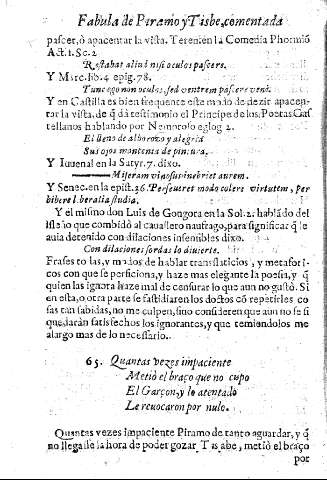 Fabula de Piramo y Tisbe, comentada
pascer, ò apacentar la vista. Terenc. en la Comedia Phormiõ
Act. 1. Sc. 2
Restabat aliud nisi oculos pascere.
Y Marc. lib. 4 epig. 78.
Tunc ego non oculos, sed ventrem pascere veni.
Y en Castilla es bien frequente este modo de dezir apacen-
tar la vista, de q̃ dà testimonio el Principe de los, Poetas Cas
tellanos hablando por Nemoroso eglog 2.
El lleno de alborozo y alegria
Sus ojos mantenia de pintura.
Y Iuuenal en la Satyr. 7. dixo.
Miseram vinosus inebriet aurem.
Y Senec. en la epist. 36. Perseueret modo colere virtutem, per
bibere liberalia studia.
Y el mismo don Luis de Gongora en la Sol. 2. hablãdo del
Isleño que combidó al cauallero naufrago, para significar q̃ le
auia detenido con dilaciones insensibles dixo.
Con dilaciones sordas lo diuierte.
Frases todas, y modos de hablar translaticios, y metafori-
cos con que se perficiona, y haze mas elegante la poesia, y q̃
quien las ignora haze mal de censurar lo que aun no gustò. Si
en esta, o otra parte se fastidiaren los doctos cõ repetirles co
sas tan sabidas, no me culpen, sino consideren que aun no se si
quedaràn satisfechos los ignorantes, y que temiendolos me
alargo mas de lo necessario.
65. Quantas vezes impaciente
Metiò el braço que no cupo
El Garçon, y lo atentado
Le reuocaron por nulo.
Quantas vezes impaciente Piramo de tanto aguardar, y q̃
no llegasse la hora de poder gozar Tisbe, metiò el braço
por